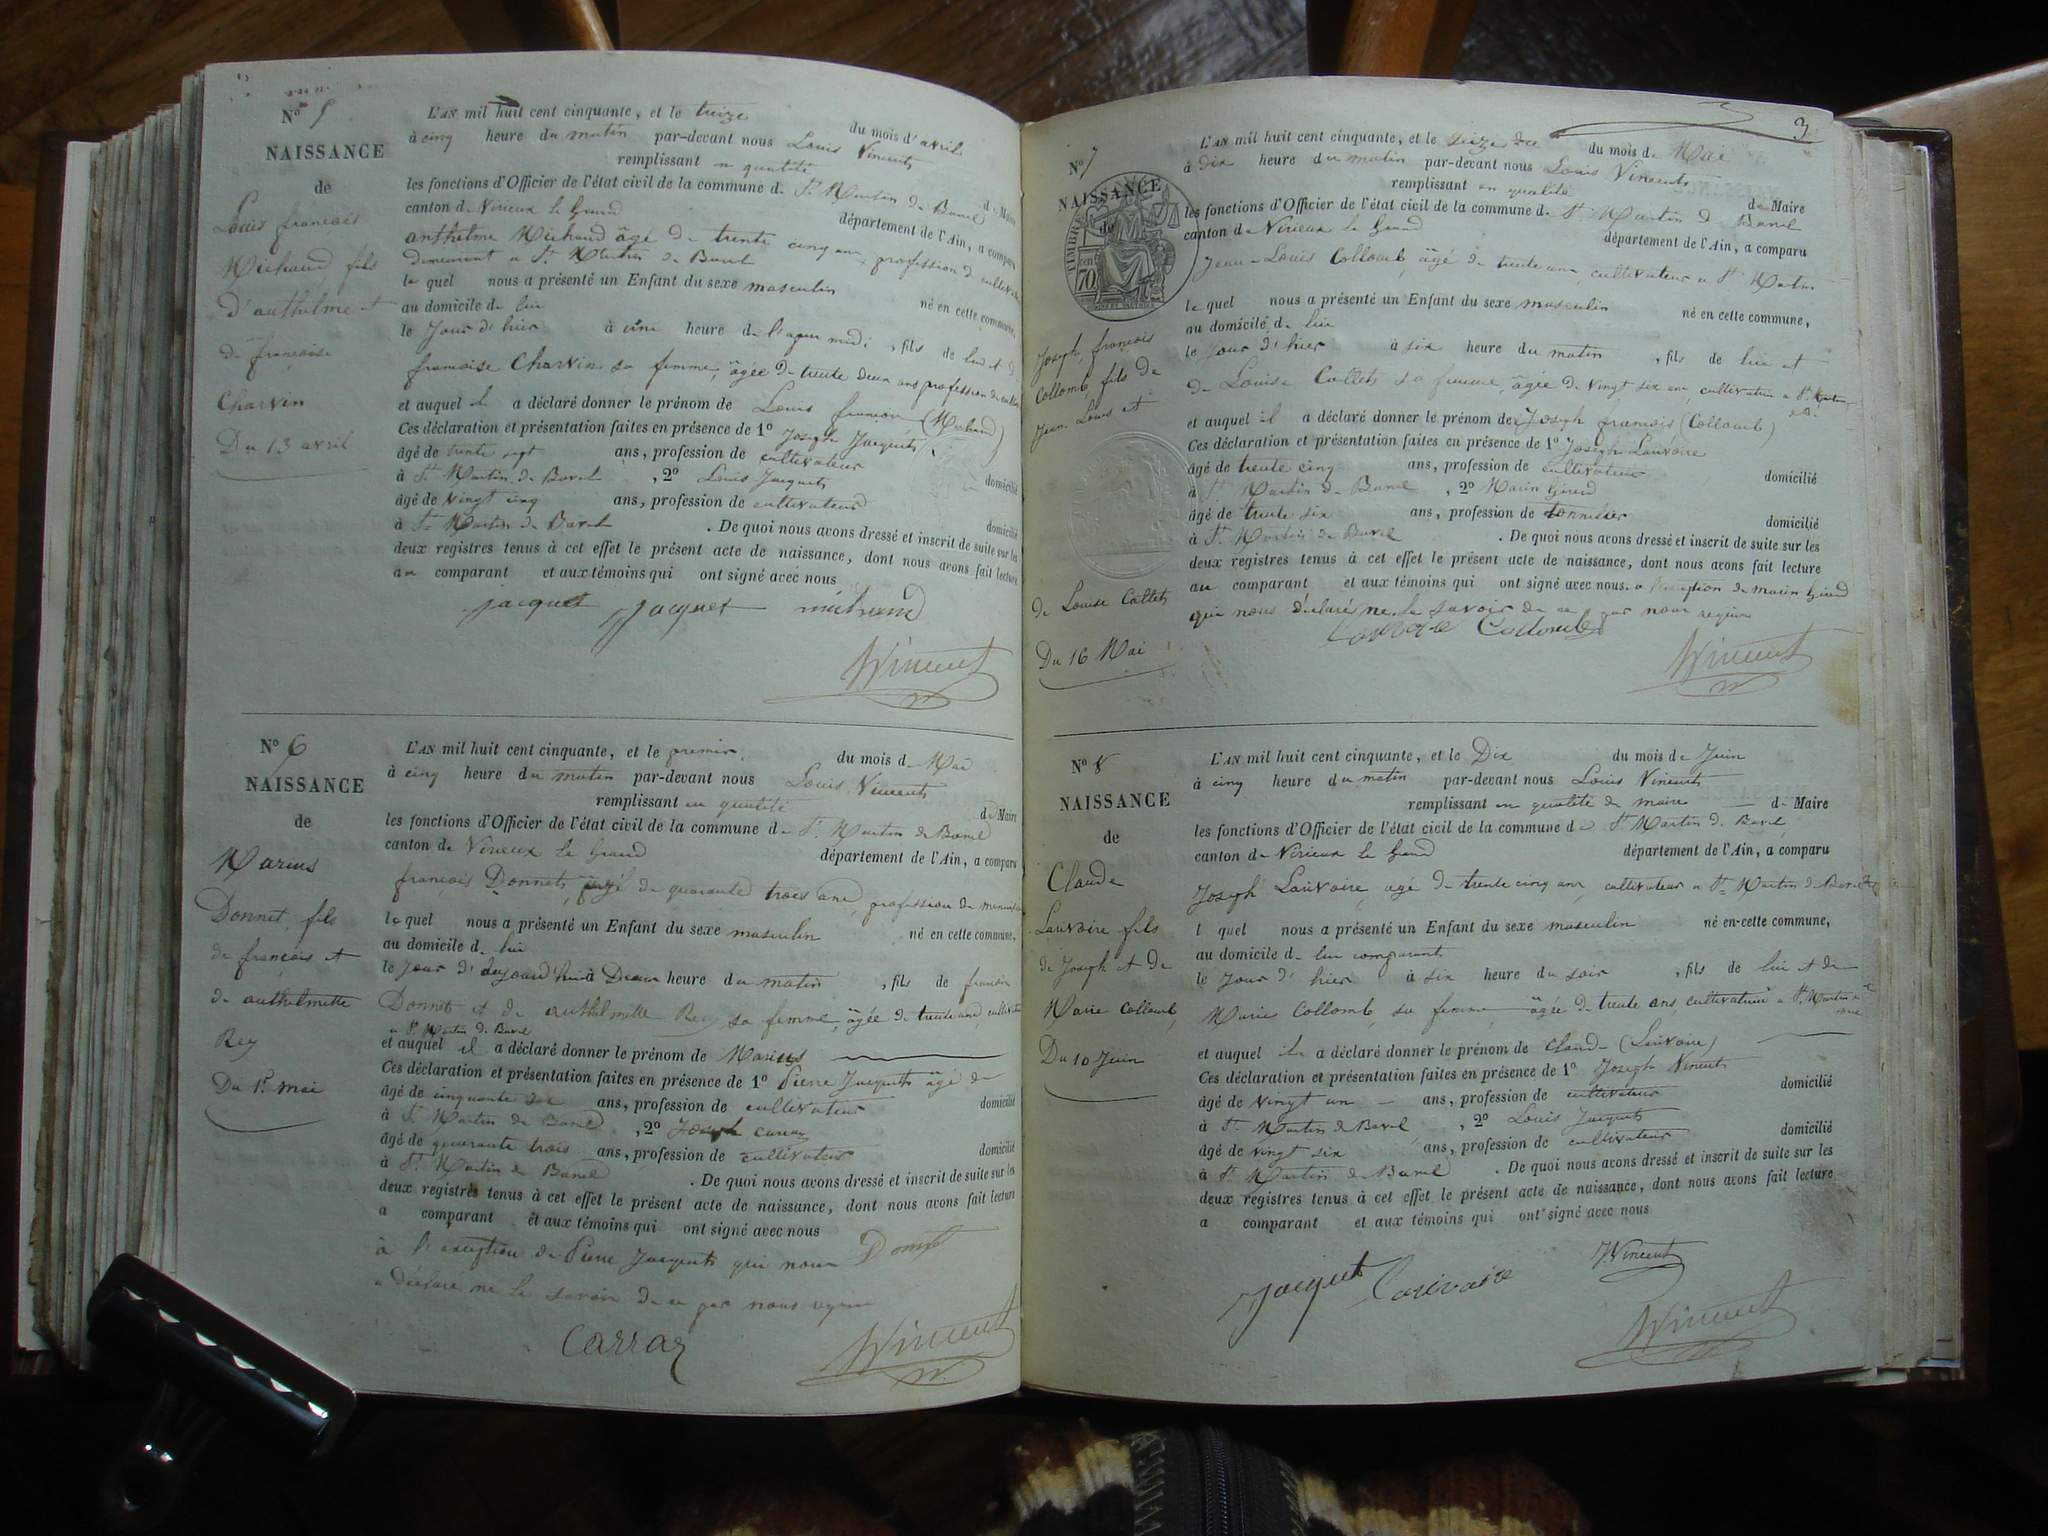 N° 5
NAISSANCE
de
Louis françois
Michaud fils
d'anthelme et
de françoise
Charvin
Du 13 avril
L'AN mil huit cent cinquante, et le treize du mois d'avril
à cinq heure du matin par-devant nous Louis Vincent
remplissant en qualité de Maire
les fonctions d'Officier de l'état civil de la commune de St Martin de Bavel
canton de Virieux le Grand département de l'Ain, a comparu
anthelme Michaud âgé de trente cinq ans, profession de cultivateur
demeurant a St Martin de Bavel
le quel nous a présenté un Enfant du sexe masculin né en cette commune,
au domicile de lui
le jour d'hier à une heure de l'apres midi, fils de lui et de
françoise Charvin sa femme, âgée de trente deux ans profession de
et auquel il a déclaré donner le prénom de Louis françois (Michaud)
Ces déclaration et présentation faites en présence de 1° Joseph Jacquet
âgé de trente sept ans, profession de cultivateur domicilié
à St Martin de Bavel, 2° Louis Jacquet
âgé de vingt cinq ans, profession de cultivateur domicilié
à St Martin de Bavel. De quoi nous avons dressé et inscrit de suite sur les
deux registres tenus à cet effet le présent acte de naissance, dont nous avons fait lecture
au comparant et aux témoins qui ont signé avec nous
jacquet Jacquet michaud
Vincent
N° 6
NAISSANCE
de
Marius
Donnet, fils
de françois et
de anthelmette
Rey
Du 1er mai
L'AN mil huit cent cinquante, et le premier du mois de Mai
à cinq heure du matin par-devant nous Louis Vincent
remplissant en qualité de Maire
les fonctions d'Officier de l'état civil de la commune de St Martin de Bavel
canton de Virieux le Grand département de l'Ain, a comparu
françois Donnet, âgé de quarante trois ans, profession de
le quel nous a présenté un Enfant du sexe masculin né en cette commune,
au domicile de lui
le jour d'aujourd'hui à Deux heure du matin, fils de françois
Donnet et de anthelmette Rey, sa femme, âgée de trente ans, cultivateur
a St Martin de Bavel
et auquel il a déclaré donner le prénom de Marius
Ces déclaration et présentation faites en présence de 1° Pierre Jacquet âgé de
âgé de cinquante ans, profession de cultivateur domicilié
à St Martin de Bavel, 2° Joseph
âgé de quarante trois ans, profession de cultivateur domicilié
à St Martin de Bavel. De quoi nous avons dressé et inscrit de suite sur les
deux registres tenus à cet effet le présent acte de naissance, dont nous avons fait lecture
a comparant et aux témoins qui ont signé avec nous
à l'exception de Pierre Jacquet qui nous Donnet
a déclaré ne le savoir de ce par nous requis
Carraz
Vincent
3
N° 7
NAISSANCE
de
TIMBRE
70
Joseph françois
Collomb, fils de
Jean Louis et
de Louise Collet
Du 16 Mai
L'AN mil huit cent cinquante, et le seize du mois de Mai
à dix heure du matin par-devant nous Louis Vincent
remplissant en qualité de Maire
les fonctions d'Officier de l'état civil de la commune de St Martin de Bavel
canton de Virieux le Grand département de l'Ain, a comparu
Jean-Louis Collomb, âgé de trente ans, cultivateur a St Martin
le quel nous a présenté un Enfant du sexe masculin né en cette commune,
au domicile de lui
le jour d'hier à six heure du matin, fils de lui et
de Louise Collet sa femme, âgée de vingt six ans, cultivateur a St Martin
et auquel il a déclaré donner le prénom de Joseph françois (Collomb)
Ces déclaration et présentation faites en présence de 1° Joseph Lauvoire
âgé de trente cinq ans, profession de cultivateur domicilié
à St Martin de Bavel, 2° Marin Girod
âgé de trente six ans, profession de tonnelier domicilié
à St Martin de Bavel. De quoi nous avons dressé et inscrit de suite sur les
deux registres tenus à cet effet le présent acte de naissance, dont nous avons fait lecture
au comparant et aux témoins qui ont signé avec nous. a l'exception de marin Girod
qui nous déclaré ne le savoir de ce par nous requis
Lauvoire Collomb
Vincent
N° 8
NAISSANCE
de
Claude
Lauvoire fils
de Joseph et de
Marie Collomb,
Du 10 Juin
L'AN mil huit cent cinquante, et le Dix du mois de Juin
à cinq heure du matin par-devant nous Louis Vincent
remplissant en qualité de maire de Maire
les fonctions d'Officier de l'état civil de la commune de St Martin de Bavel
canton de Virieux le Grand département de l'Ain, a comparu
Joseph Lauvoire, agé de trente cinq ans, cultivateur a St Martin de Bavel
l quel nous a présenté un Enfant du sexe masculin né en cette commune,
au domicile de lui comparant
le jour d'hier à six heure du soir, fils de lui et de
Marie Collomb, sa femme, âgée de trente ans, cultivateur a St Martin
et auquel il a déclaré donner le prénom de Claude (Lauvoire)
Ces déclaration et présentation faites en présence de 1° Joseph Vincent
âgé de vingt un ans, profession de cultivateur domicilié
à St Martin de Bavel, 2° Louis Jacquet
âgé de vingt six ans, profession de cultivateur domicilié
à St Martin de Bavel. De quoi nous avons dressé et inscrit de suite sur les
deux registres tenus à cet effet le présent acte de naissance, dont nous avons fait lecture
a comparant et aux témoins qui ont signé avec nous
Jacquet Lauvoire J. Vincent
Vincent